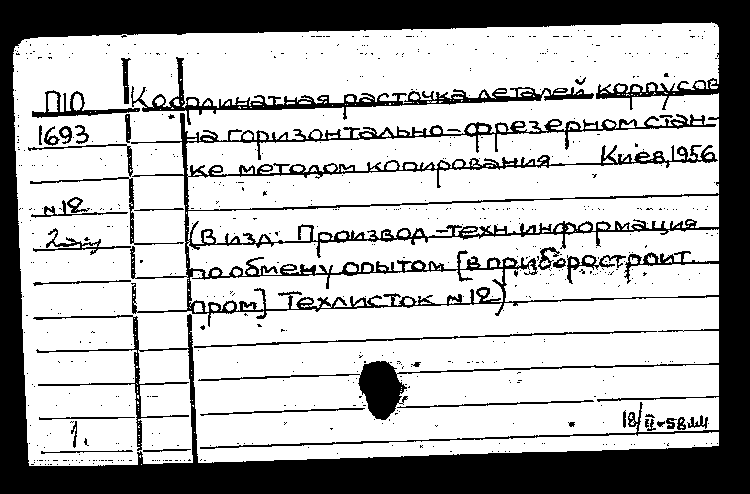 П10 Координатная расточка деталей корпусов
1693 на горизонтально-фрезерном стан-
ке методом копирования Киев, 1956
№12
(В изд: Производ.-техн. информация
по обмену опытом [в приборостроит.
пром] Техлисток №12).
1.
18/II-58